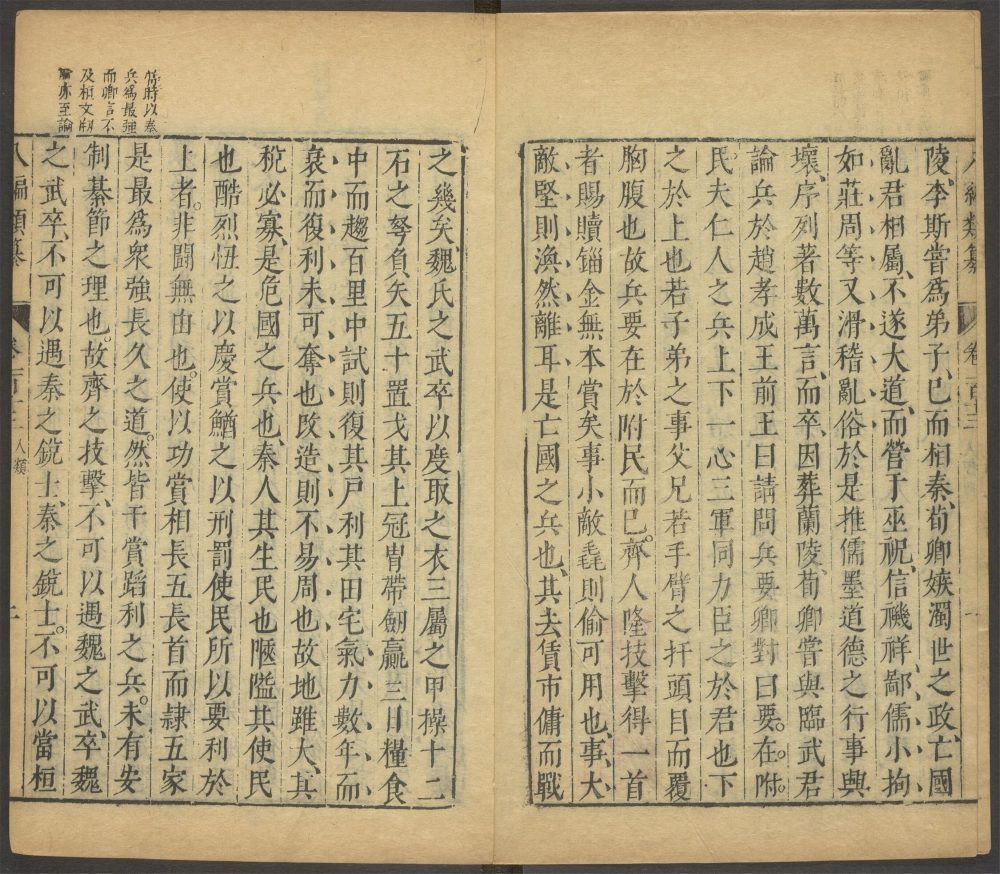 八編類纂 卷百三 人 一
陵李斯嘗爲弟子已而相秦荀卿嫉濁世之政亡國
亂君相屬不遂大道而營于巫祝信禨祥鄙儒小拘
如莊周等又滑稽亂俗於是推儒墨道德之行事興
壞序列著數萬言而卒因葬蘭陵荀卿嘗與臨武君
論兵於趙孝成王前王曰請問兵要卿對曰要在附
民夫仁人之兵上下一心三軍同力臣之於君也下
之於上也若子弟之事父兄若手臂之扞頭目而覆
胸腹也故兵要在於附民而已齊人隆技擊得一首
者賜贖錙金無本賞矣事小敵毳則偷可用也事大
敵堅則渙然離耳是亡國之兵也其去賃市傭而戰
之幾矣魏氏之武卒以度取之衣三屬之甲操十二
石之弩負矢五十置戈其上冠冑帶劒贏三日糧食
中而趨百里中試則復其戸利其田宅氣力數年而
衰而復利未可奪也改造則不易周也故地雖大其
稅必寡是危國之兵也秦人其生民也陿隘其使民
也酷烈忸之以慶賞鰌之以刑罰使民所以要利於
上者非鬪無由也使以功賞相長五長首而隷五家
是最爲衆強長久之道然皆干賞蹈利之兵未有安
制綦節之理也故齊之技擊不可以遇魏之武卒魏
之武卒不可以遇秦之銳士秦之銳士不可以當桓
八編類纂 卷百三 人類 二
時以秦
兵爲最強
而卿言不
及桓文
亦至論